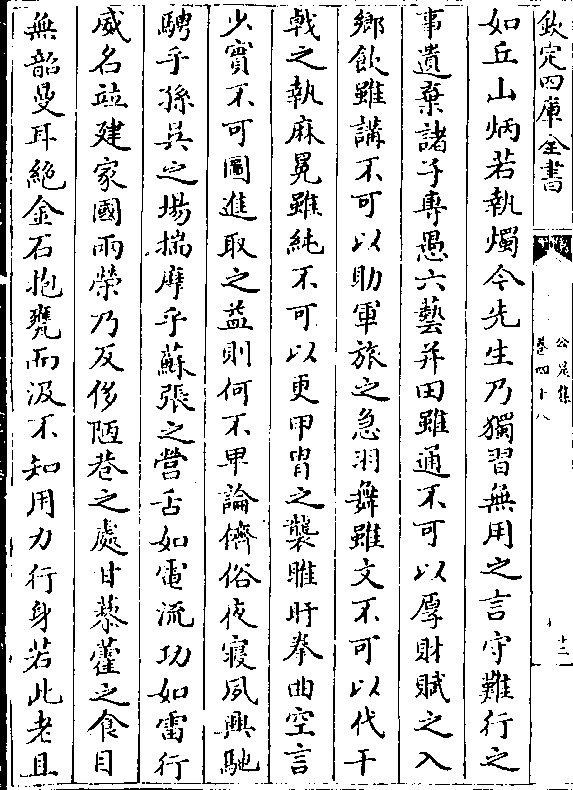 欽定四庫全書
公是集
卷四十八
十三
如丘山炳若執燭今先生乃獨習無用之言守難行之
事遺棄諸子專愚六藝井田雖通不可以厚財賦之入
鄉飲雖講不可以助軍旅之急羽舞雖文不可以代干
戟之執麻冕雖純不可以更甲胄之襲睢盱拳曲空言
少實不可圖進取之益則何不卑論儕俗夜寢夙興馳
騁乎孫吳之場揣摩乎蘇張之營舌如電流功如雷行
威名竝建家國兩榮乃反侈陋巷之處甘藜藿之食目
無韶曼耳絶金石抱甕而汲不知用力行身若此老且